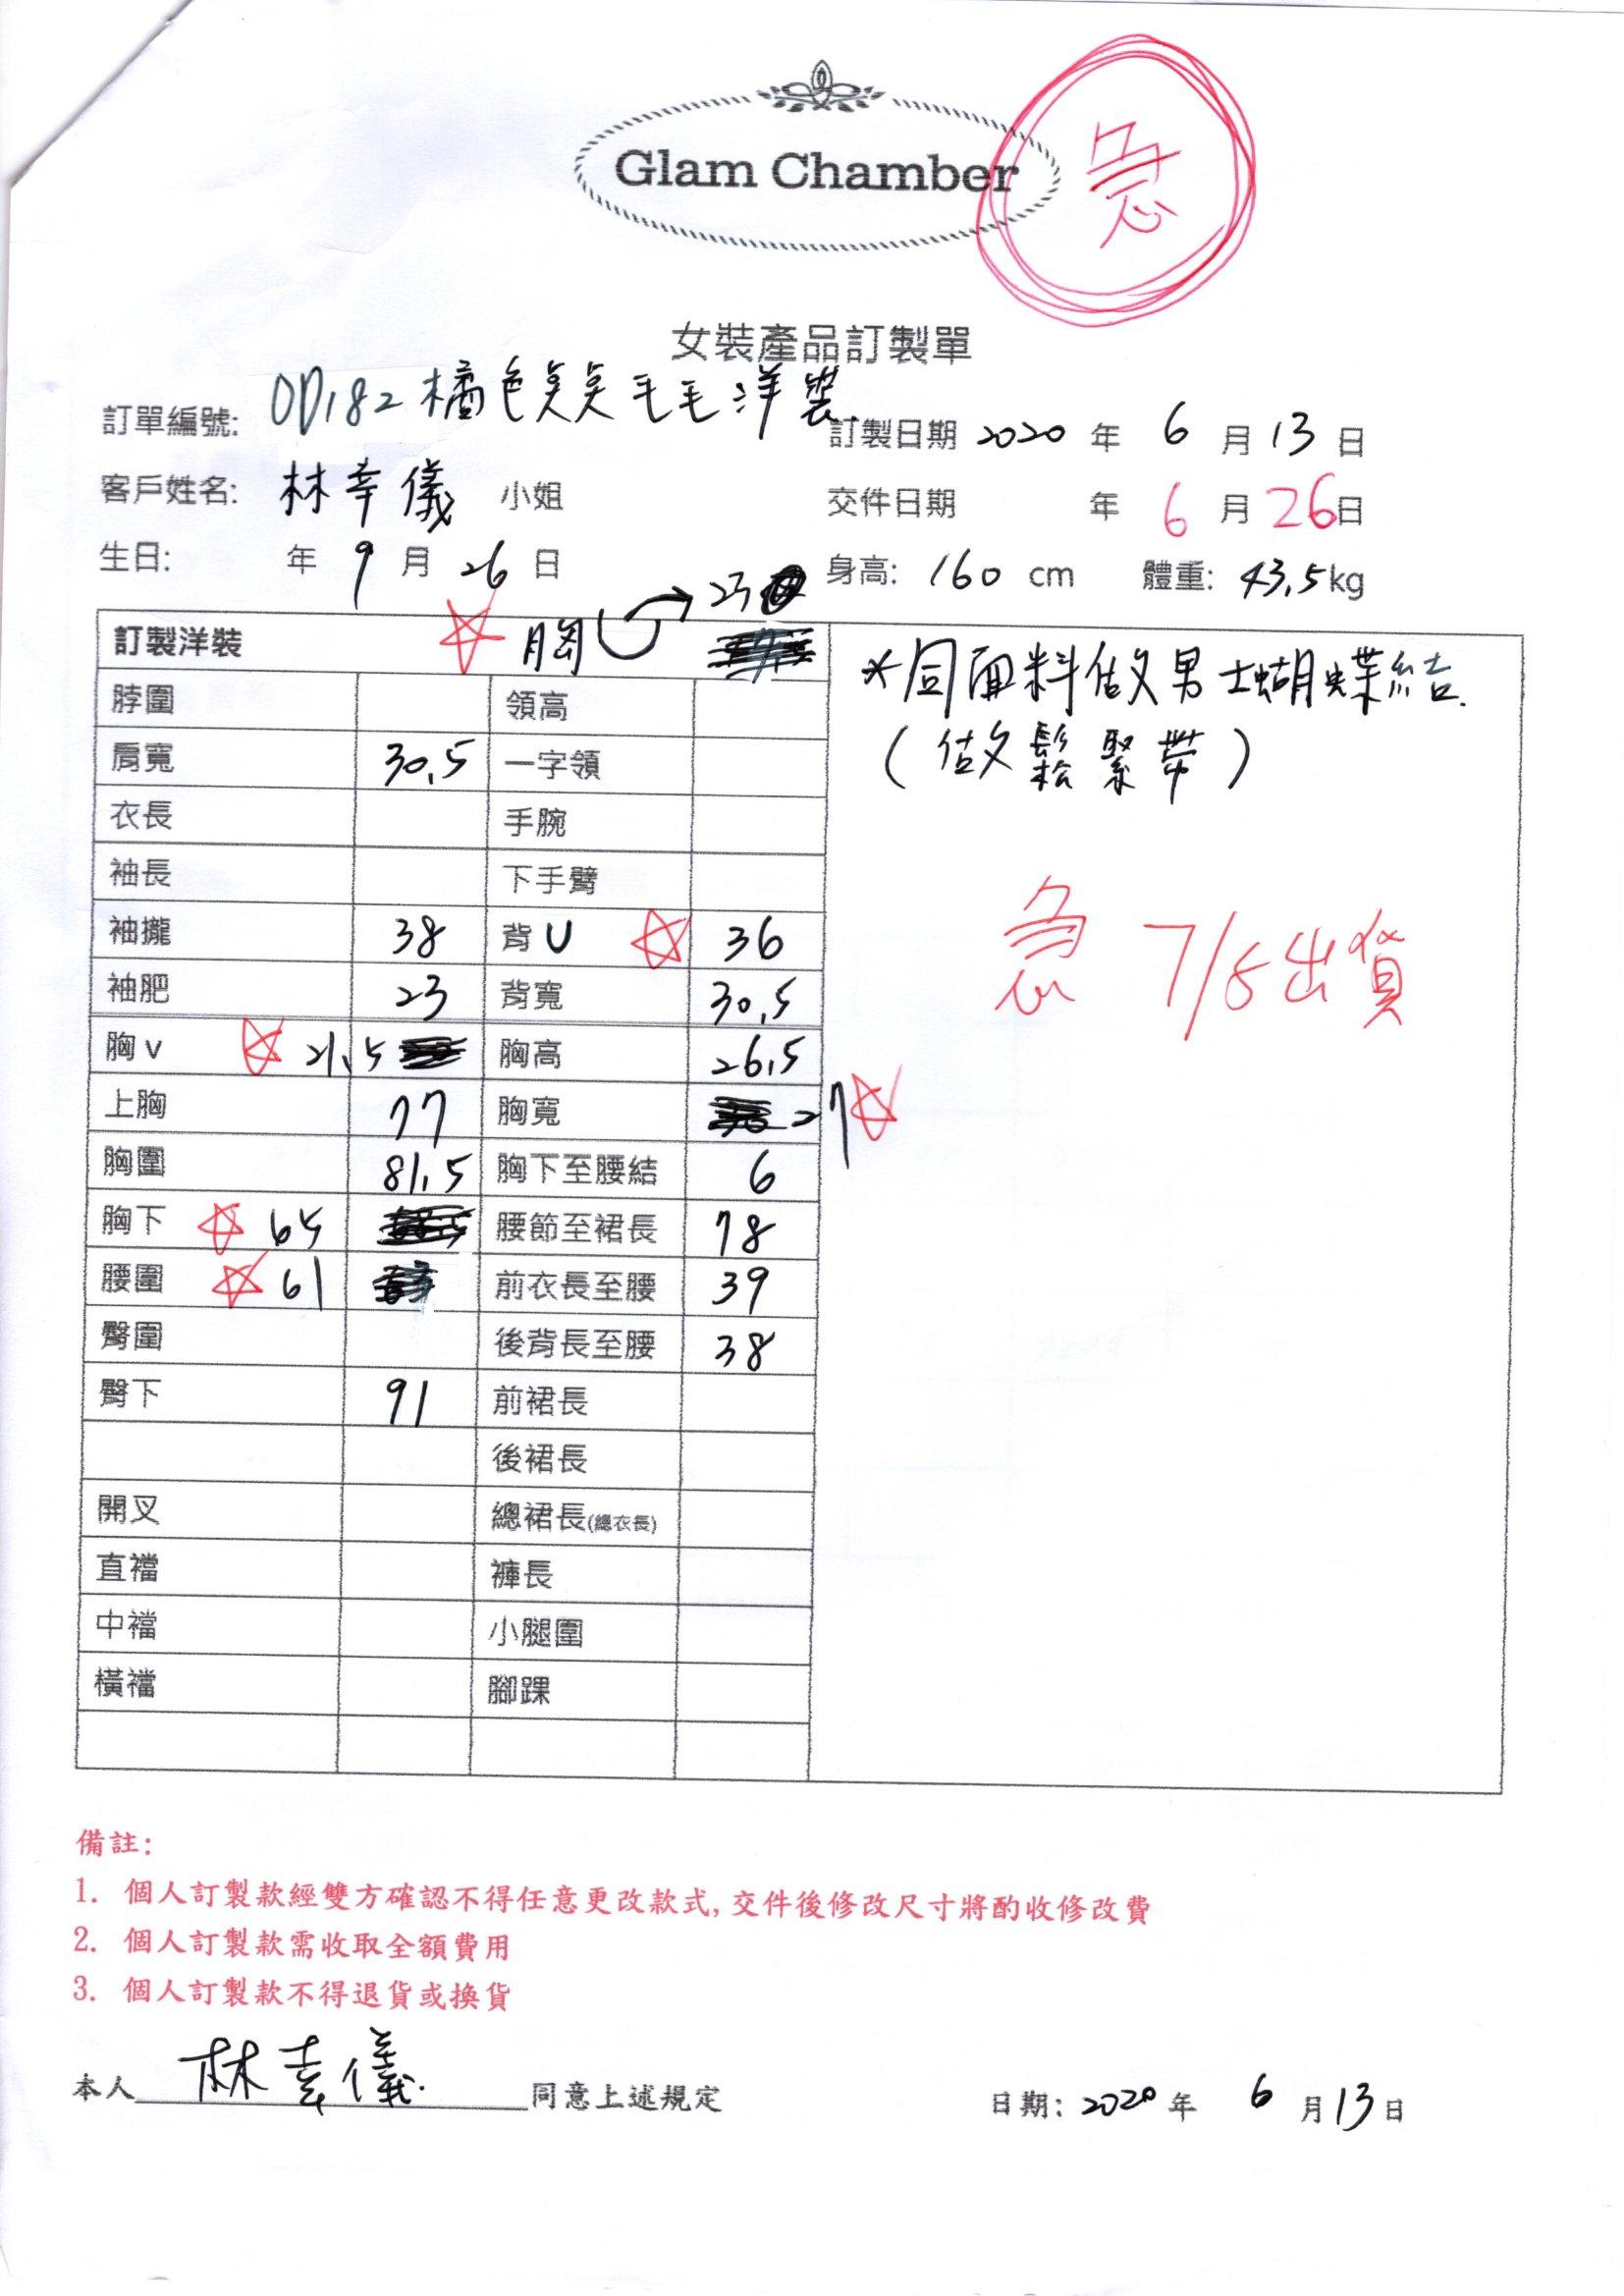 Glam Chamber
急
女裝產品訂製單
訂單編號: OD182橘色點點毛毛洋裝
訂製日期 2020 年 6 月 13 日
客戶姓名: 林幸儀 小姐
交件日期 年 6 月 26日
生日: 年 9 月 26 日
身高: 160 cm 體重: 43.5kg
訂製洋裝 ☆ 胸U → 23
*同面料做男士蝴蝶結.
(做鬆緊帶)
急 7/5出貨
脖圍 領高
肩寬 30.5 一字領
衣長 手腕
袖長 下手臂
袖攏 38 背U ☆ 36
袖肥 23 背寬 30.5
胸v ☆ 21.5 胸高 26.5
上胸 77 胸寬 27 ☆
胸圍 81.5 胸下至腰結 6
胸下 ☆ 65 腰節至裙長 78
腰圍 ☆ 61 前衣長至腰 39
臀圍 後背長至腰 38
臀下 91 前裙長
後裙長
開叉 總裙長(總衣長)
直襠 褲長
中襠 小腿圍
橫襠 腳踝
備註:
1. 個人訂製款經雙方確認不得任意更改款式, 交件後修改尺寸將酌收修改費
2. 個人訂製款需收取全額費用
3. 個人訂製款不得退貨或換貨
本人 林幸儀. 同意上述規定
日期: 2020 年 6 月 13 日